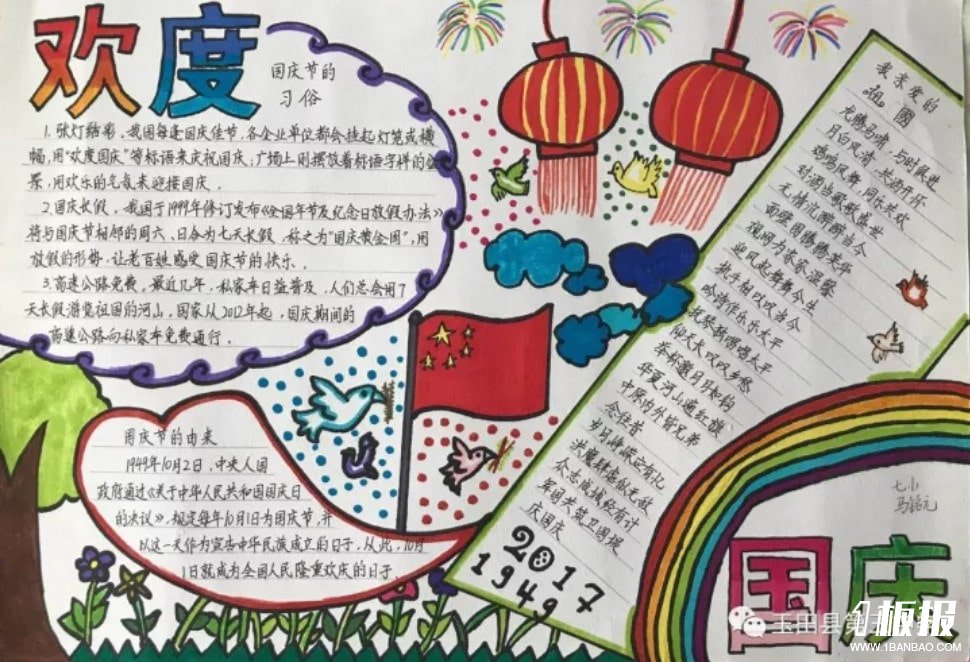 欢度
国庆节的
习俗
1.张灯结彩，我国每逢国庆佳节，各企业单位都会挂起灯笼或横
幅，用“欢度国庆”等标语来庆祝国庆；广场上则摆放着标语字样的
景，用欢乐的气氛来迎接国庆。
2.国庆长假，我国于1999年修订发布《全国年节及纪念日放假办法》
将与国庆节相邻的周六、日合为七天长假，称之为“国庆黄金周”；用
放假的形势，让老百姓感受国庆节的快乐。
3.高速公路免费，最近几年，私家车日益普及，人们总会用7
天长假游览祖国的河山，国家从2012年起，国庆期间的
高速公路向私家车免费通行。
国庆节的由来
1949年10月2日，中央人国
政府通过《关于中华人民共和国国庆日
的决议》，规定每年10月1日为国庆节，并
以这一天作为宣告中华民族成立的日子，从此，10月
1日就成为全国人民隆重欢庆的日子
我亲爱的
祖國
龙腾马啸，与时俱进
月白风清，共酒开怀
鸡鸣凤舞，同乐共欢
对酒当歌歌盛世
无情沉醉醉当今
迎风起舞舞今生
执手相以以当今
吟诗作乐乐太平
举杯邀月月如钩
华夏河山遍红旗
中原内外皆兄弟
念往昔
众志成城终有计
军国共筑卫国堤
庆国庆
2017
1949
七小
马铭元
国庆
玉田县第
板报
WWW.1BANBAO.COM